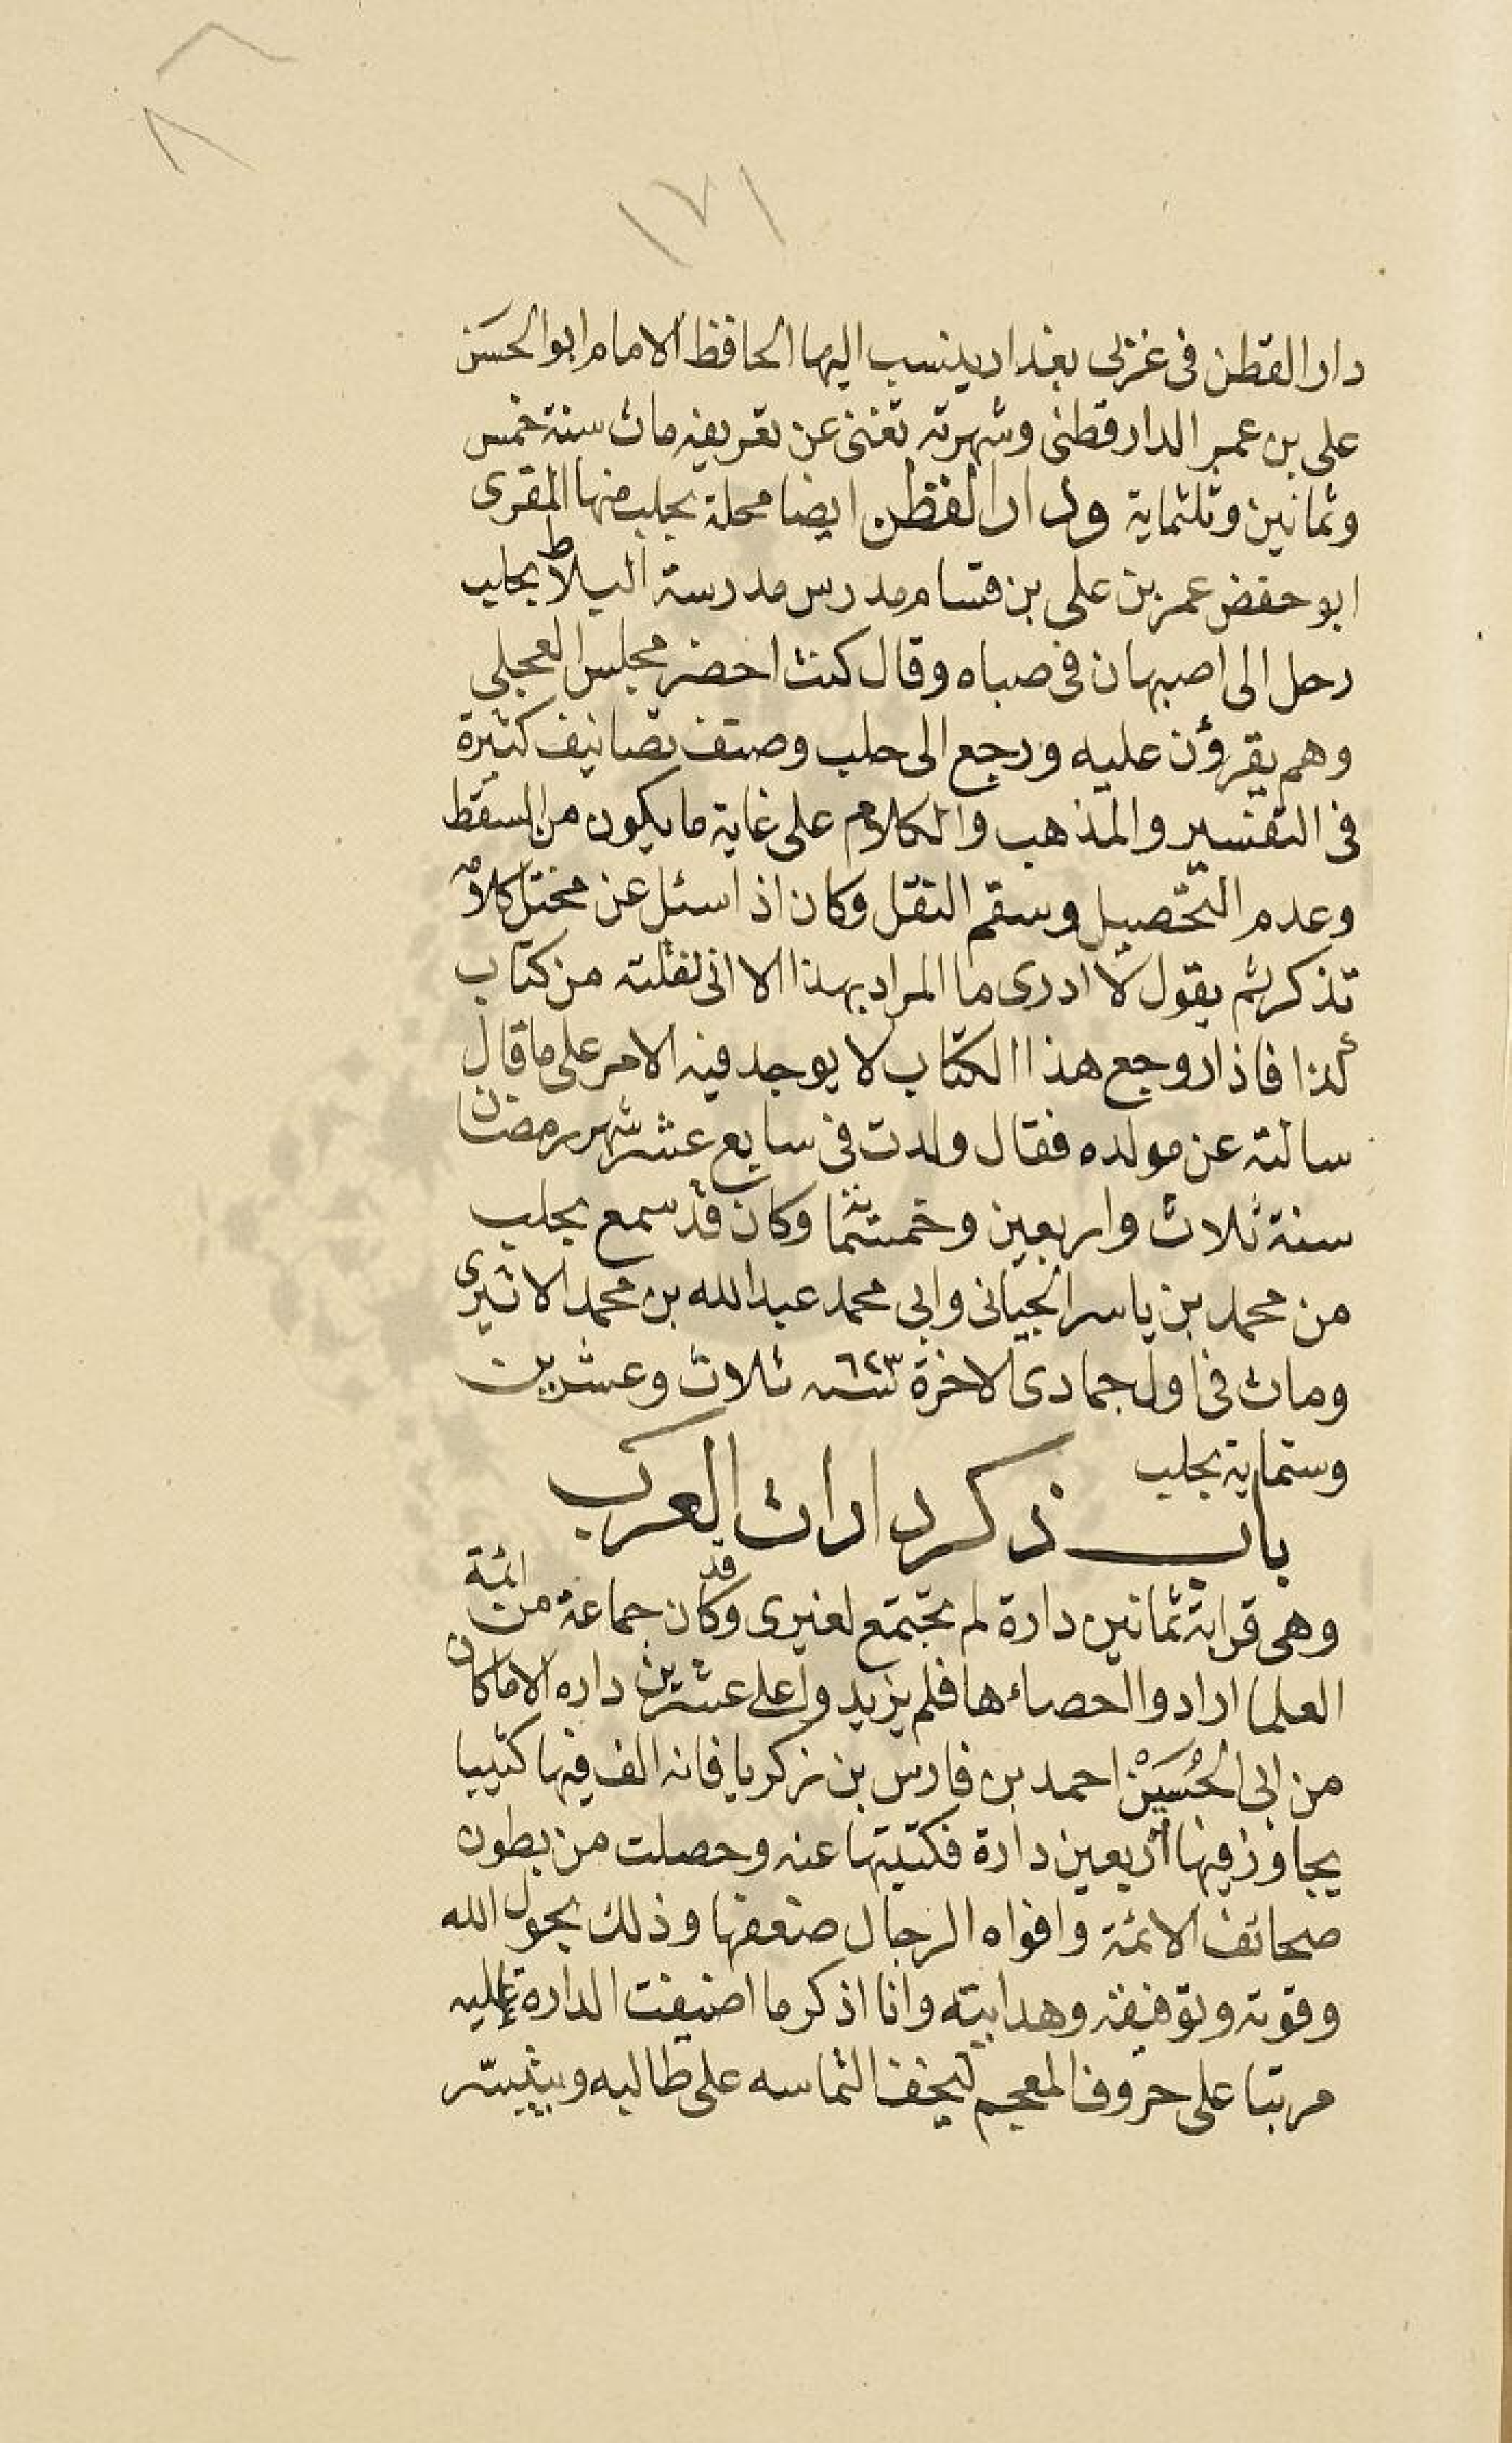 ١٧١
دار القطن فى غزبى بغداد ينسب اليها الحافظ الامام ابو الحسن
على بن عمر الدارقطنى وشهرته تغنى عن تعريفه مات سنة خمس
وثمانين وثلثماية ودار القطن ايضا محلة بحلب منها المقرى
ابو حفص عمر بن على بن قسام مدرس مدرسة البلاط بحلب
رحل الى اصبهان فى صباه وقال كنت احضر مجلس العجلى
وهم يقرؤن عليه ورجع الى حلب وصنف تصانيف كثيرة
فى التفسير والمذهب والكلام على غاية ما يكون من السقط
وعدم التحصيل وسقم النقل وكان اذا سئل عن مختل كلامه
تذكر ثم يقول لا ادرى ما المراد بهذا الا انى نقلته من كتاب
كذا فاذا روجع هذا الكتاب لا يوجد فيه الامر على ما قال
سالته عن مولده فقال ولدت فى سابع عشر شهر رمضان
سنة ثلاث واربعين وخمسماية وكان قد سمع بحلب
من محمد بن ياسر الجيانى وابى محمد عبد الله بن محمد الاشيرى
ومات فى اول جمادى الاخرة سنة ٦٢٣ ثلاث وعشرين
وستماية بحلب
باب ذكر دارات العرب
وهى قرابة ثمانين دارة لم تجتمع لغيرى وقد كان جماعة من ائمة
العلما ارادوا احصاءها فلم يزيدوا على عشرين داره الا ما كان
من ابى الحُسَيْن احمد بن فارس بن زكريا فانه الف فيها كتيبا
يجاوز فيها اربعين دارة فكتبتها عنه وحصلت من بطون
صحائف الائمة وافواه الرجال ضعفها وذلك بحول الله
وقوته وتوفيقه وهدايته وانا اذكر ما اضيفت الدارة اليه
مرتبا على حروف المعجم ليخف التماسه على طالبه ويتيسر